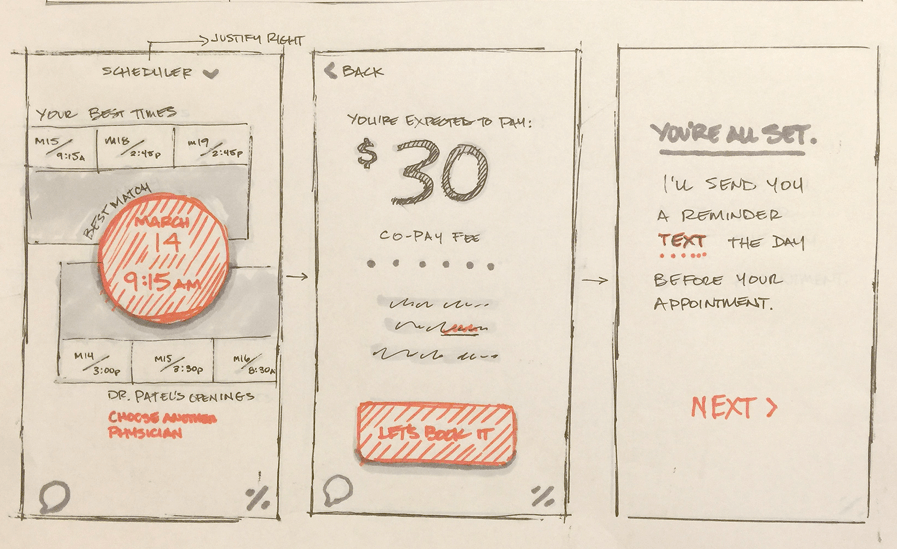 JUSTIFY RIGHT
SCHEDULER
YOUR BEST TIMES
M15/9:15A M18/2:45P M19/2:45P
BEST MATCH
MARCH
14
9:15 AM
M14/3:00P M15/3:30P M16/8:30A
DR. PATEL'S OPENINGS
CHOOSE ANOTHER
PHYSICIAN
< BACK
YOU'RE EXPECTED TO PAY:
$30
CO-PAY FEE
LET'S BOOK IT
YOU'RE ALL SET.
I'LL SEND YOU
A REMINDER
TEXT THE DAY
BEFORE YOUR
APPOINTMENT.
NEXT >